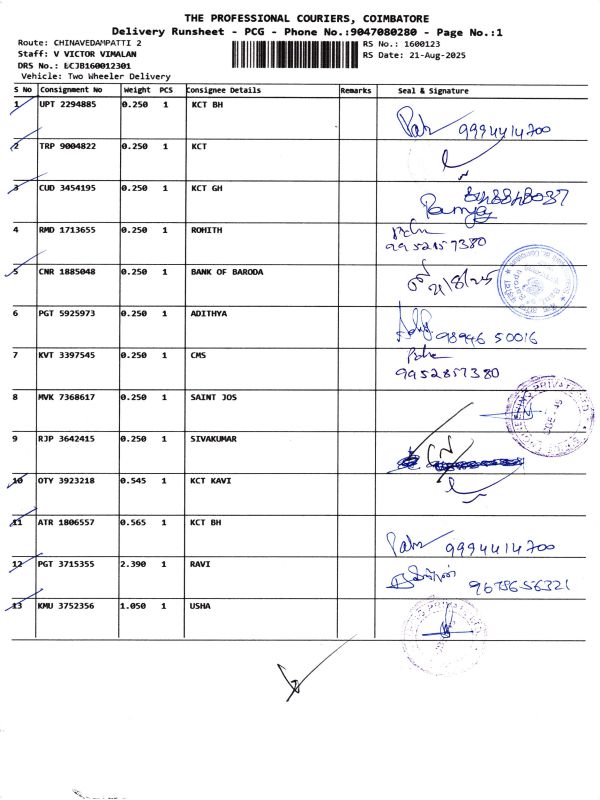 THE PROFESSIONAL COURIERS, COIMBATORE
Delivery Runsheet - PCG - Phone No.:9047080280 - Page No.:1
Route: CHINAVEDAMPATTI 2
Staff: V VICTOR VIMALAN
DRS No.: ECJB160012301
Vehicle: Two Wheeler Delivery
RS No.: 1600123
RS Date: 21-Aug-2025
S No Consignment No Weight PCS Consignee Details Remarks Seal & Signature
1 UPT 2294885 0.250 1 KCT BH
9994414700
2 TRP 9004822 0.250 1 KCT
3 CUD 3454195 0.250 1 KCT GH
4 RMD 1713655 0.250 1 ROHITH
9952857380
5 CNR 1885048 0.250 1 BANK OF BARODA
21/8/25
6 PGT 5925973 0.250 1 ADITHYA
98946 50016
7 KVT 3397545 0.250 1 CMS
9952857380
8 MVK 7368617 0.250 1 SAINT JOS
9 RJP 3642415 0.250 1 SIVAKUMAR
10 OTY 3923218 0.545 1 KCT KAVI
11 ATR 1806557 0.565 1 KCT BH
9994414700
12 PGT 3715355 2.390 1 RAVI
9678656321
13 KMU 3752356 1.050 1 USHA